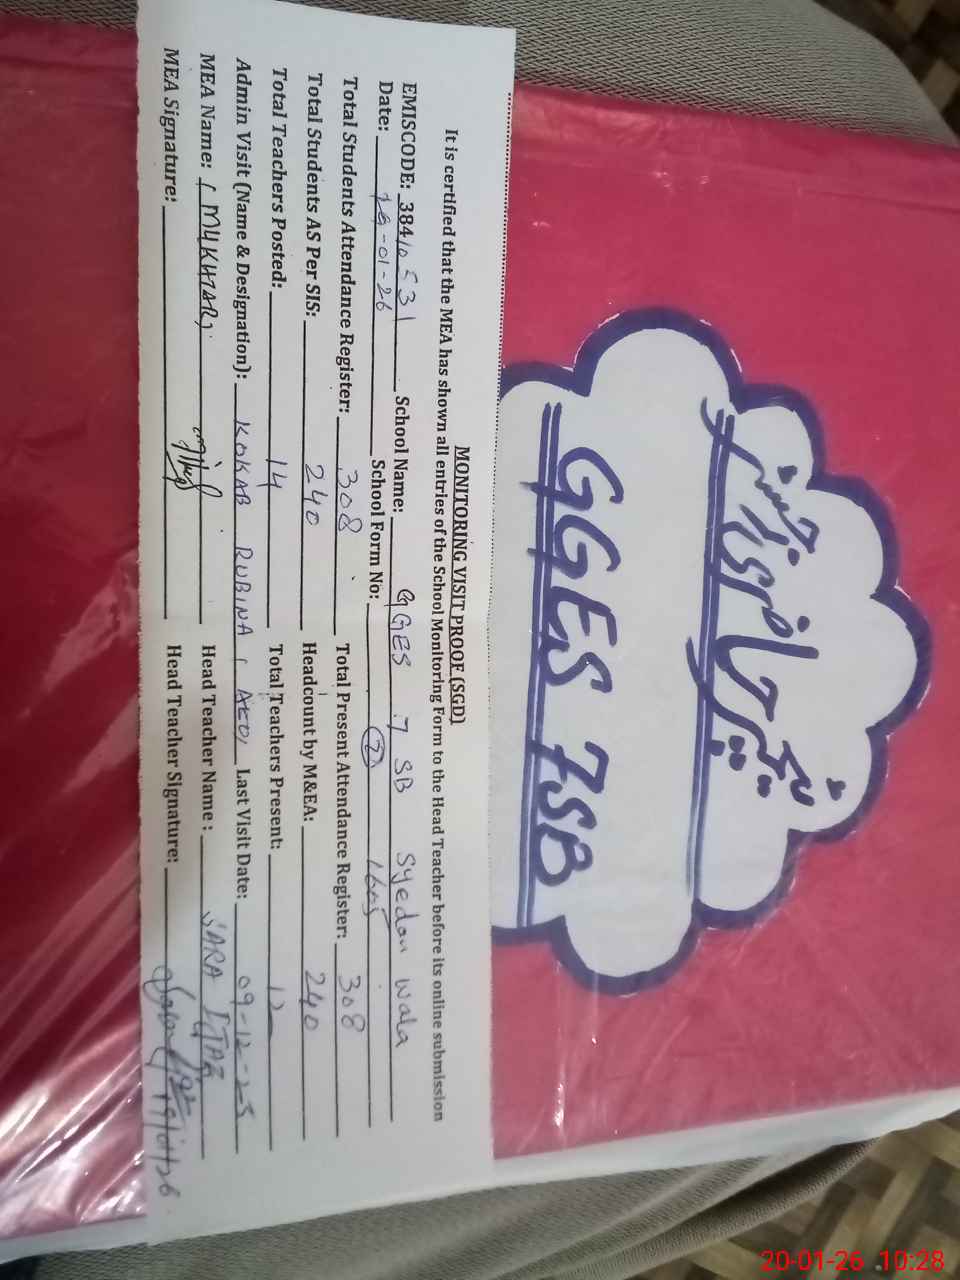 MONITORING VISIT PROOF (SGD)
It is certified that the MEA has shown all entries of the School Monitoring Form to the Head Teacher before its online submission
EMISCODE: 384/0531 School Name: GGES 7 SB Syedan Wala
Date: 19-01-26 School Form No: 2
Total Students Attendance Register: 308 Total Present Attendance Register: 308
Total Students AS Per SIS: 240 Headcount by M&EA: 240
Total Teachers Posted: 14 Total Teachers Present: 12
Admin Visit (Name & Designation): KOKAB RUBINA, AEO, Last Visit Date: 09-12-25
MEA Name: (MUKHTAR) Head Teacher Name: SARA
MEA Signature: Head Teacher Signature: 19/01/26
رجسٹر حاضری
GGES 7SB
20-01-26 10:28